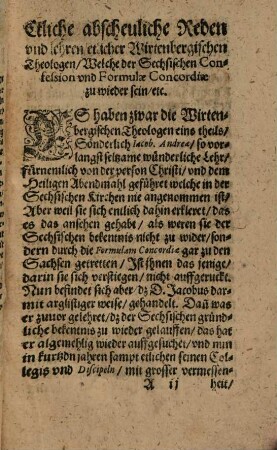 Etliche abscheuliche Reden
vnd lehren etlicher Wirtenbergischen
Theologen/ Welche der Sechsischen Con-
fession vnd Formulæ Concordiæ
zu wieder sein/ etc.
ES haben zwar die Wirten-
bergischen Theologen eins theils/
Sonderlich Iacob. Andreæ/ so vor-
langst seltzame wünderliche Lehr/
fürnemlich von der person Christi/ vnd dem
Heiligen Abendmahl geführet welche in der
Sechsischen Kirchen nie angenommen ist/
Aber weil sie sich entlich dahin erkleret/ das
es das ansehen gehabt/ als weren sie der
Sechsischen bekentnis nicht zu wider/ son-
dern durch die Formulam Concordiæ gar zu den
Sachsen getretten/ Ist ihnen das jenige/
darin sie sich verstiegen/ nicht auffgeruckt.
Nun befindet sich aber/ dz D. Jacobus dar-
mit arglistiger weise/ gehandelt. Dañ was
er zuuor gelehret/ dz der Sechsischen gründ-
liche bekentnis zu wieder gelauffen/ das hat
er algemehlig wieder auffgesuchet/ vnd nun
in kurtzdn jahren sampt etlichen seinen Col-
legis vnd Discipeln/ mit grosser vermessen-
A ij heit/